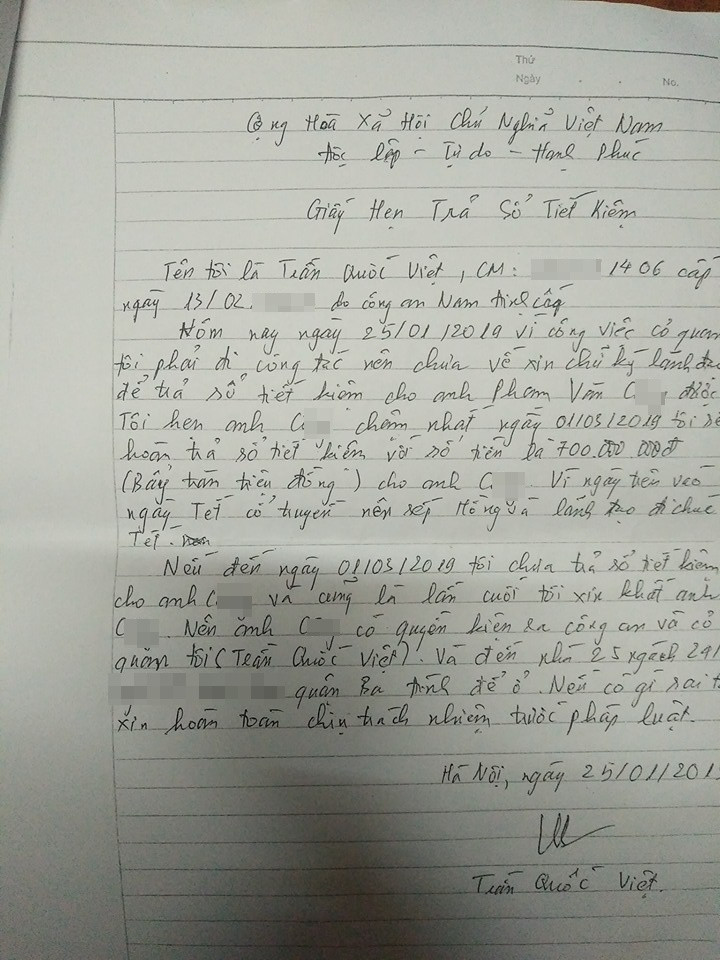 Thứ
Ngày . . No.
Cộng Hoà Xả Hội Chủ Nghĩa Việt Nam
Độc lập - Tự do - Hạnh Phúc
Giấy Hẹn Trả Sổ Tiết Kiệm
Tên tôi là Trần Quốc Việt, CM: 1406 cấp
ngày 13/02. do công an Nam Định cấp
Hôm nay ngày 25/01/2019 vì công việc cơ quan
tôi phải đi công tác nên chưa về xin chữ ký lãnh đạo
để trả sổ tiết kiệm cho anh Phạm Văn C được
Tôi hẹn anh C chậm nhất ngày 01/03/2019 tôi sẽ
hoàn trả sổ tiết kiệm với số tiền là 700.000.000đ
(Bảy trăm triệu đồng) cho anh C. Vì ngày tiến vào
ngày Tết cổ truyền nên sếp Hồng và lãnh đạo đi chúc
Tết.
Nếu đến ngày 01/03/2019 tôi chưa trả sổ tiết kiệm
cho anh C và cũng là lần cuối tôi xin khất anh
C. Nên anh C có quyền kiện ra công an và cơ
quan tôi (Trần Quốc Việt). Và đến nhà 25 ngách 291
quận Ba Đình để ở. Nếu có gì sai t
xin hoàn toàn chịu trách nhiệm trước pháp luật.
Hà Nội, ngày 25/01/201
Trần Quốc Việt.